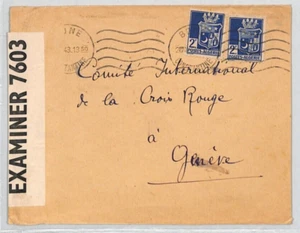 EXAMINER 7603
Comité International
de la Croix Rouge
à
Genève